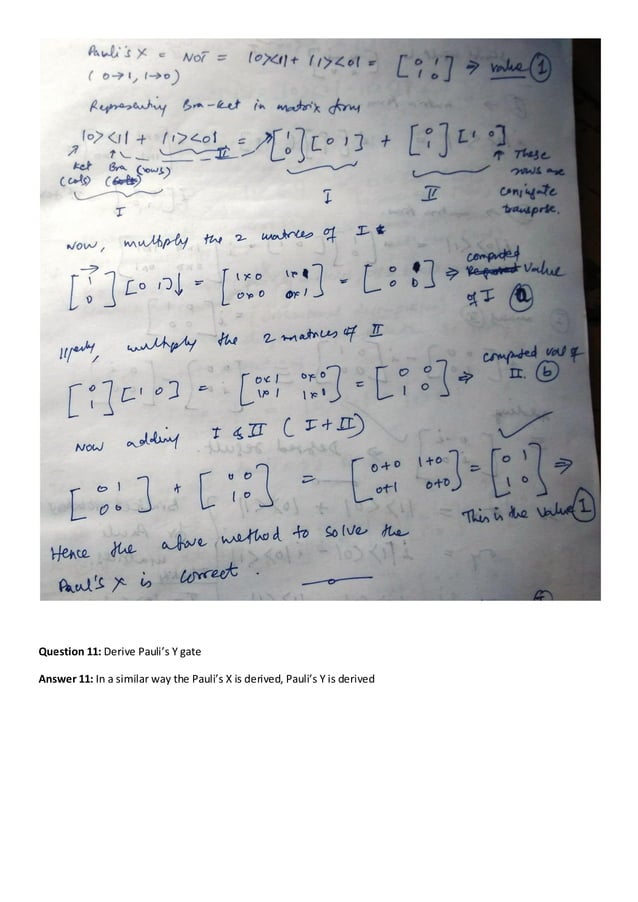 Pauli's X = NOT = |0><1| + |1><0| = [0 1 1 0] ⇒ value (1)
(0→1, 1→0)
Representing Bra-ket in matrix form
|0><1| + |1><0| = [1 0] [0 1] + [0 1] [1 0]
II
ket Bra (rows)
(cols)
↑ These rows are conjugate transpose.
I I II
Now, multiply the 2 matrices of I
[1 0] [0 1] ↓ = [1x0 1x1 0x0 0x1] = [0 1 0 0] ⇒ computed value of I (a)
lllarly, multiply the 2 matrices of II
[0 1] [1 0] = [0x1 0x0 1x1 1x0] = [0 0 1 0] ⇒ computed val of II. (b)
Now adding I & II (I + II)
[0 1 0 0] + [0 0 1 0] = [0+0 1+0 0+1 0+0] = [0 1 1 0] ⇒
This is the value (1)
Hence the above method to solve the
Paul's X is correct.
Question 11: Derive Pauli's Y gate
Answer 11: In a similar way the Pauli's X is derived, Pauli's Y is derived